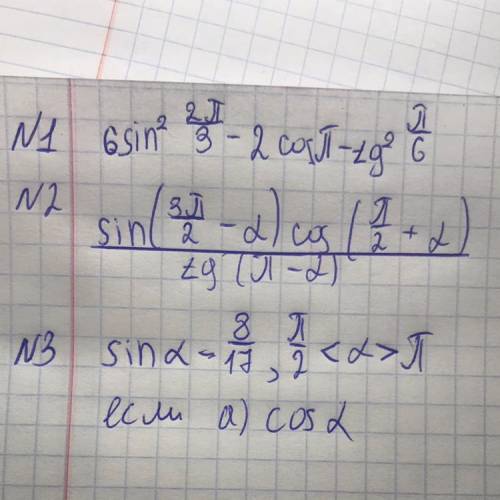 N1 6sin² 2π/3 - 2 cosπ - tg² π/6
N2 sin(3π/2 - α) cos(π/2 + α) / tg(π - α)
N3 sinα - 8/17, π/2 < α > π
если а) cosα